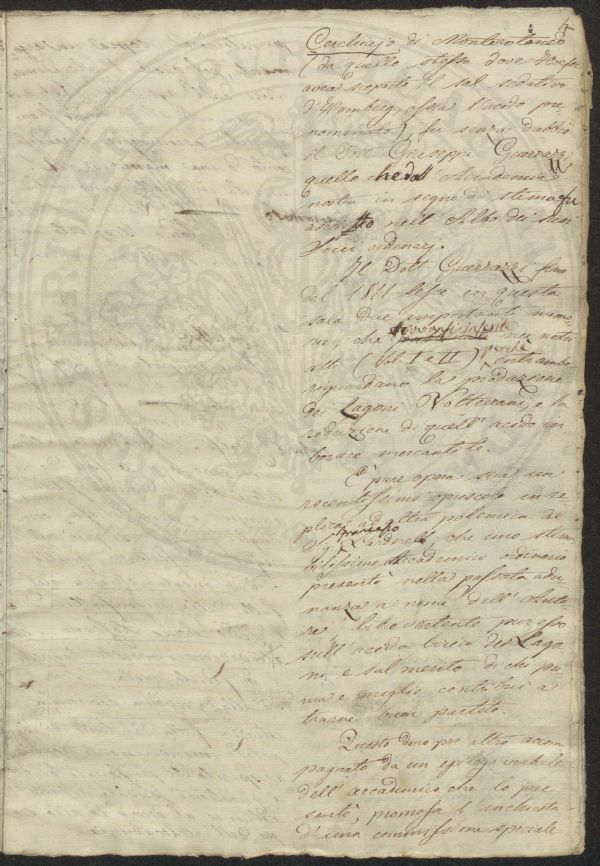 4
Cerchiajo di Monterotondo
(da quello stesso dove Hoefer
avea scoperto il sal sedativo
d'Homberg, ossia l'acido pre
nominato), fu senza dubbio
il Dott. Giuseppe Guerrazzi
quello che dall' Accademia
nostra in segno di stima fu
ascritto nell' Albo dei suoi
Socj ordinarj.
Il Dott. Guerrazzi fino
dal 1811 lesse in questa
sala due importanti memo-
rie, che trovansi inserite nei nostri
atti, (Vol. I e II) perchè entrambe
reguardano la produzione
dei Lagoni Volterrani, e la
reduzione di quell' acido in
borace mercantile.
È pure opera sua un
recentissimo opuscolo in re
plica ad altra polemica del
Sig. Francesco Larderel, che uno stima
bilissimo Accademico
presentò nella passata adu
nanza a nome dell' Auto-
re, libro vertente pur esso
sull' acido borico dei Lago
ni, e sul merito di chi pri
ma e meglio contribuì a
trarne buon partito.
Questo dono per altro accom
pagnato da un epilogo verbale
dell' accademico che lo pre
sentò, promosse l' inchiesta
d'una commissione speciale